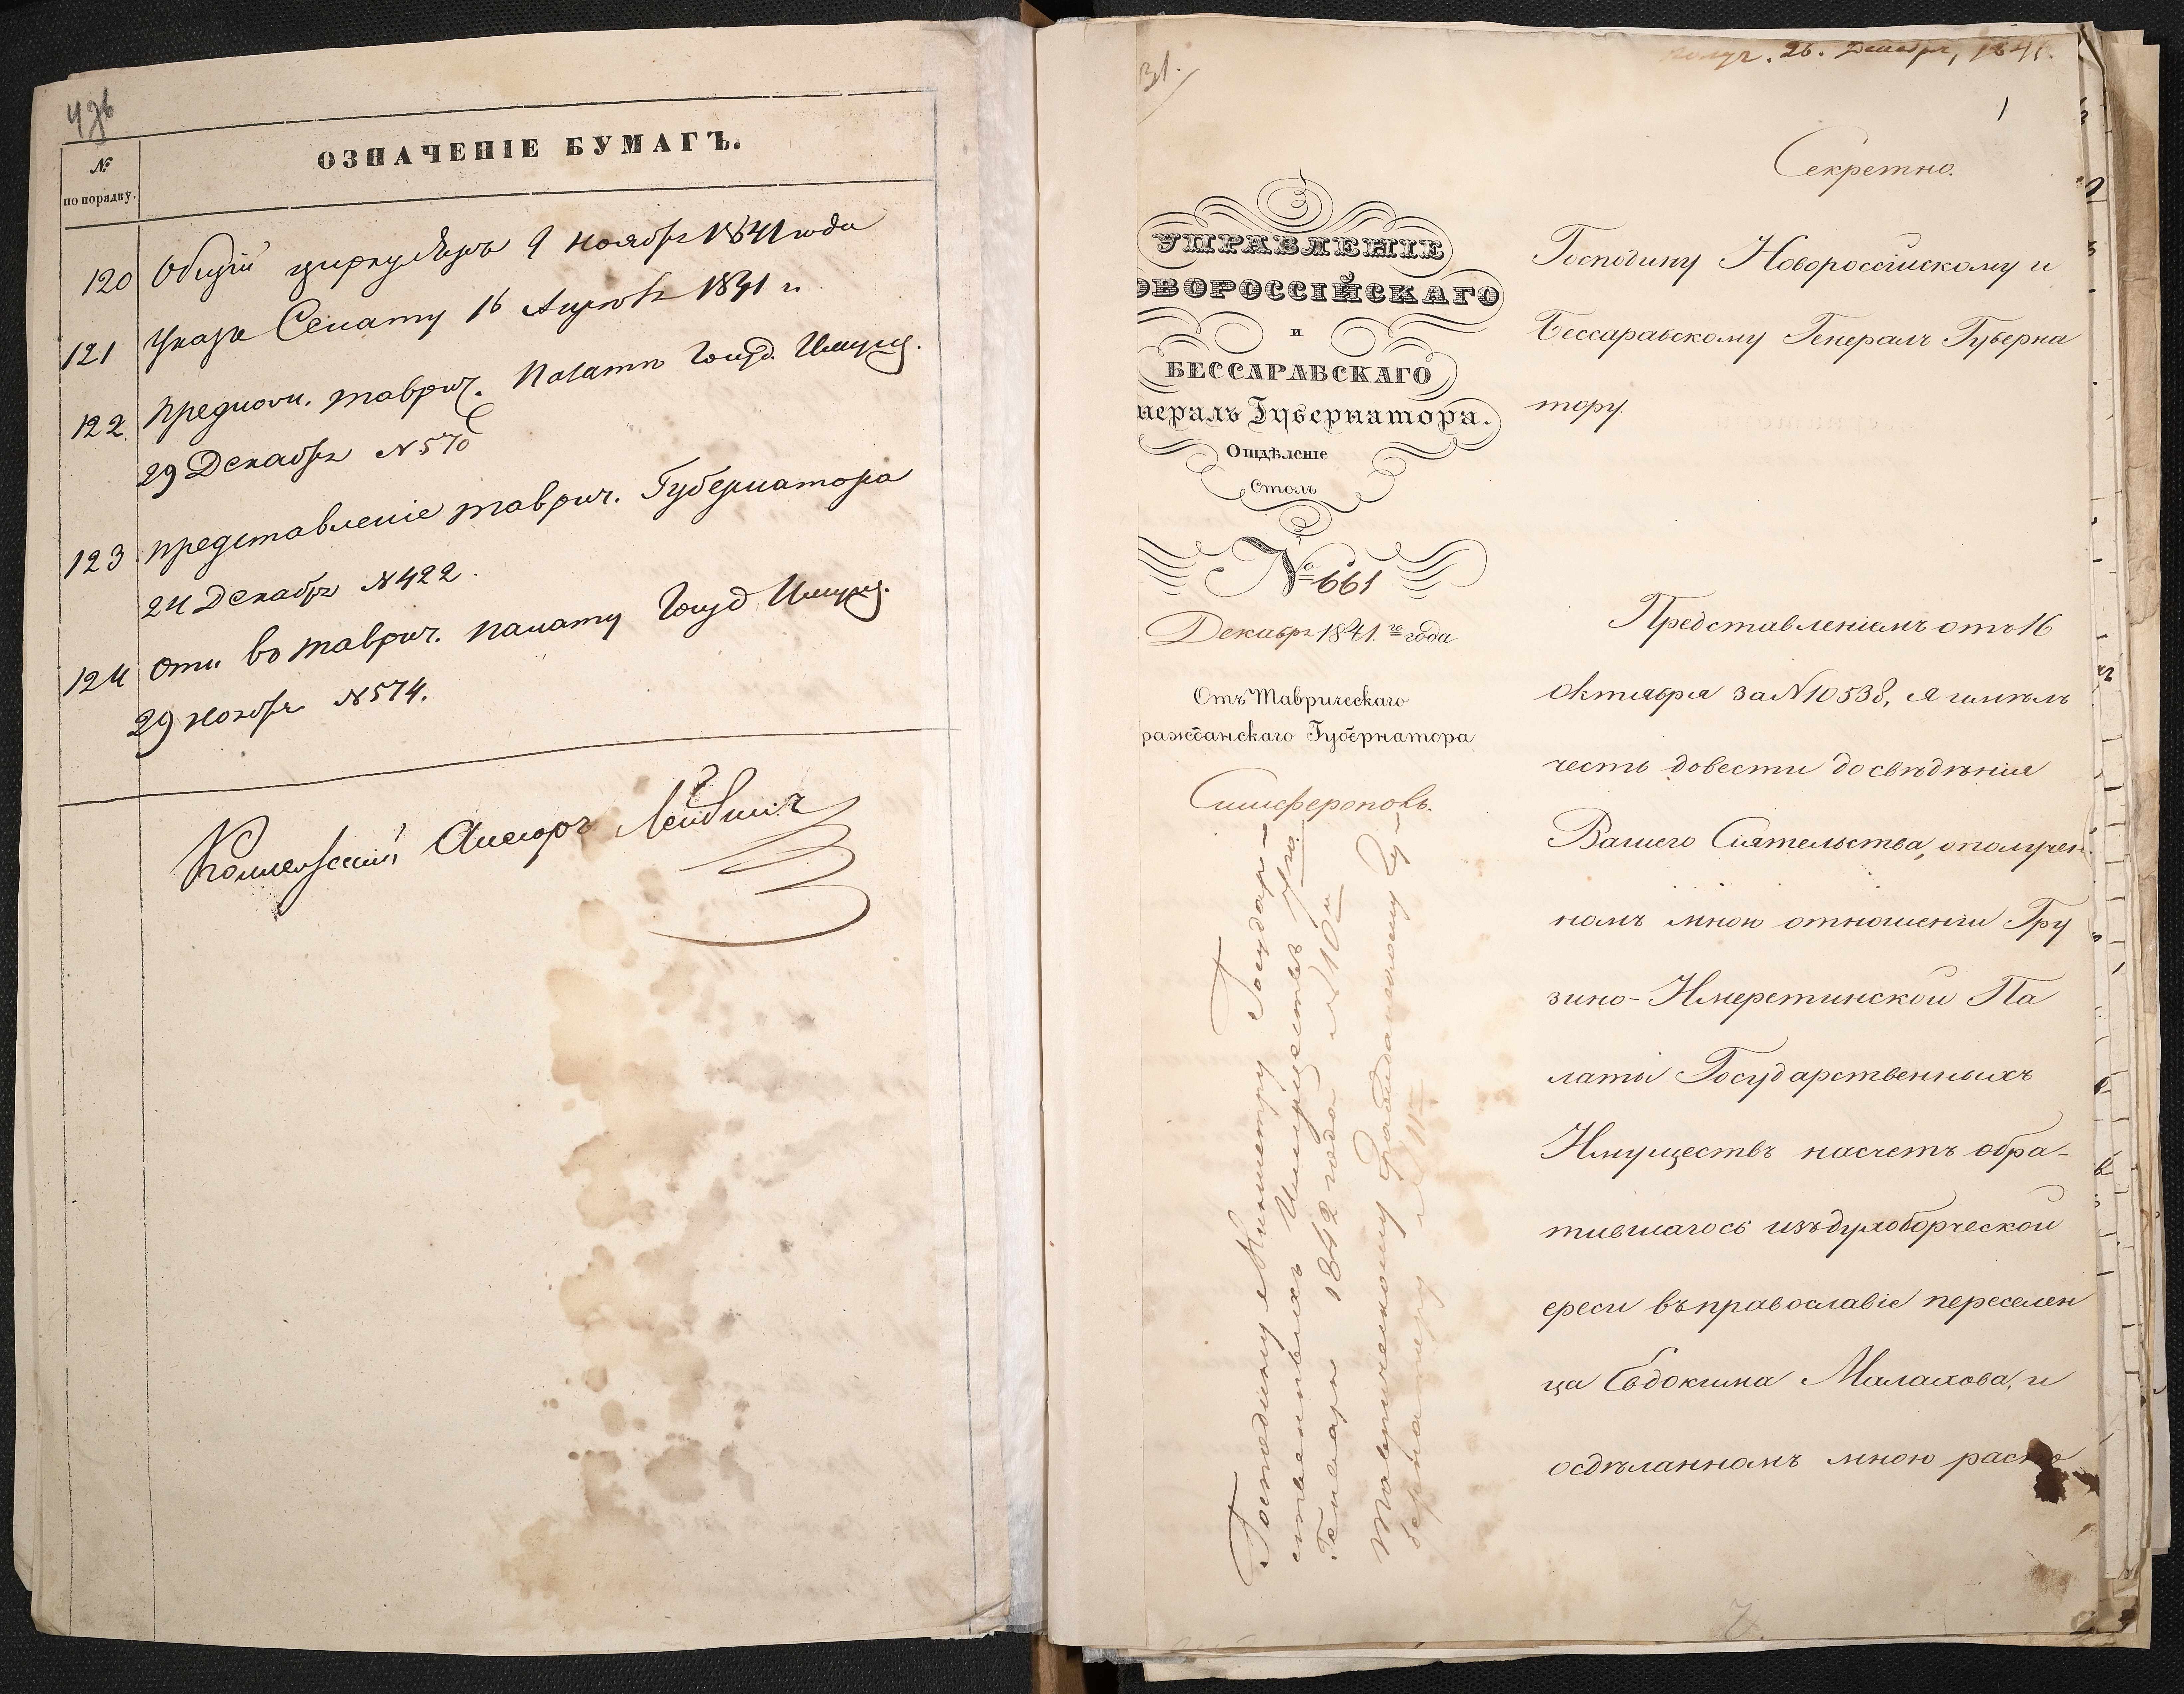 №
по порядку.
ОЗНАЧЕНІЕ БУМАГЪ.
120 Общій циркуляръ 9 ноября 1841 года
121 Указъ Сенату 16 Апреля 1841 г.
122 Предлож. таврич. Палатѣ Госуд. Имущ.
29 Декабря № 570
123 представленіе таврич. Губернатора
24 Декабря № 422.
124 Отн въ таврич. палату Госуд Имущ.
29 ноября № 574.
31.
Получ. 26. Декабря, 1841.
1
Секретно.
УПРАВЛЕНІЕ
ОВОРОССІЙСКАГО
и
БЕССАРАБСКАГО
нералъ Губернатора.
Отдѣленіе
Столъ
№ 661
Декабря 1841.го года
Отъ Таврическаго
ражданскаго Губернатора
Симферополь.
Господину Министру Государ-
ственныхъ Имуществъ 7го
Генваря 1842 года № 10й
Таврическому Гражданскому Гу-
бернатору № 11й
Господину Новороссійскому и
Бессарабскому Генералъ Губерна
тору.
Представленіемъ отъ 16
октября за № 10538, я имѣлъ
честь довести до свѣдѣнія
Вашего Сіятельства, о получен
номъ мною отношеніи Гру
зино-Имеретинской Па
латы Государственныхъ
Имуществъ насчетъ обра-
тившагось изъ духоборческой
ереси въ православіе переселен
ца Евдокима Малахова, и
осдѣланномъ мною распо